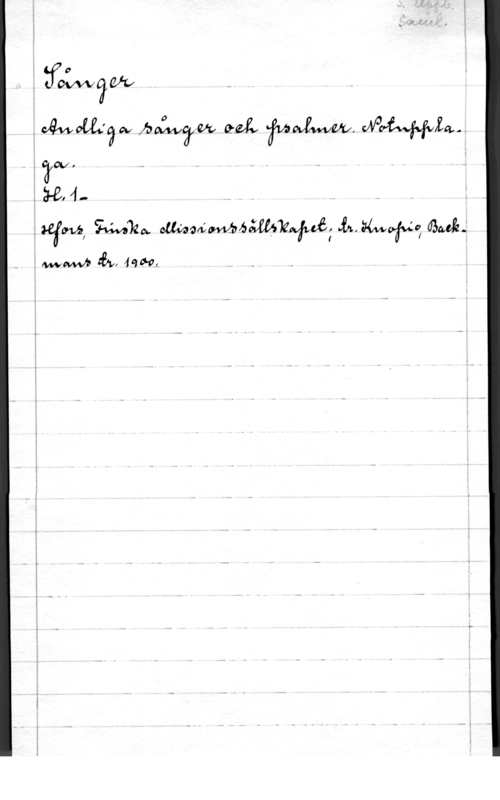 Sånger
Andliga sånger och psalmer. Notuppla-
ga.
H. 1-
Hfors, Finska Missionssällskapet; tr. Kuopio, Back-
mans tr. 1900.